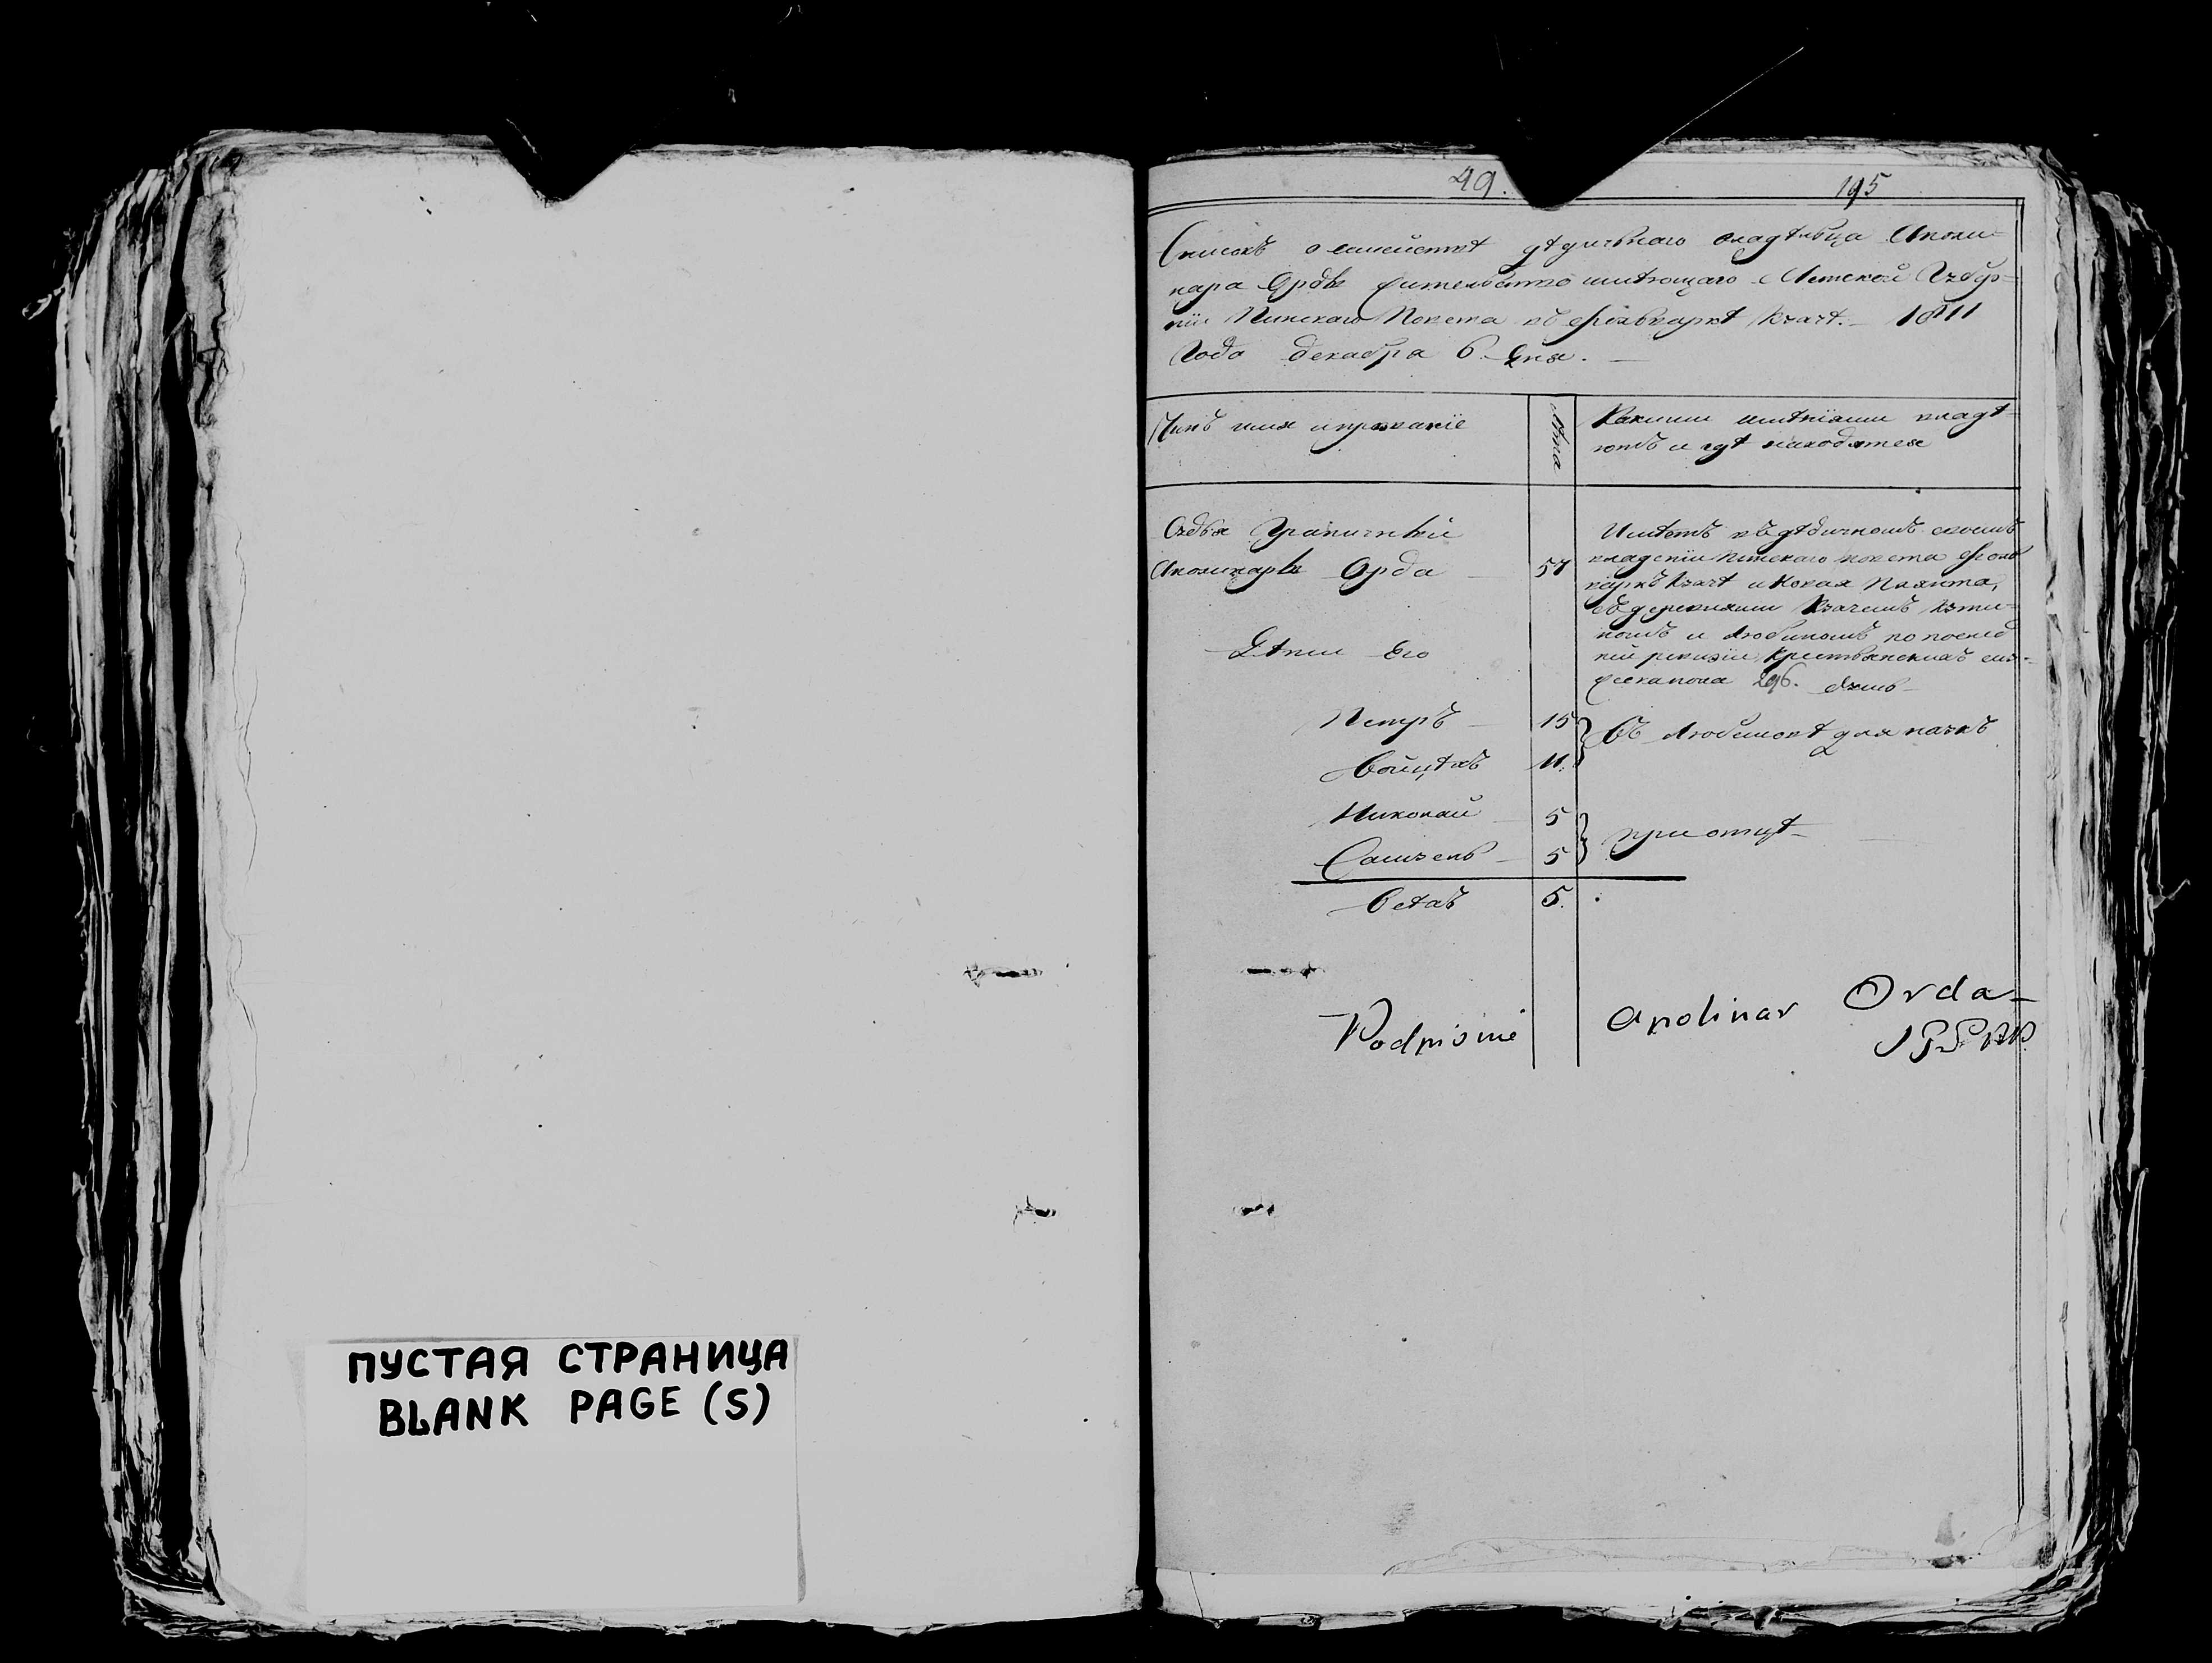 ПУСТАЯ СТРАНИЦА
BLANK PAGE (S)
49.
195
Списокъ о семействѣ дѣдичьнаго владѣльца Аполи-
нара Орды жительство имѣющаго Минской Губер-
ніи Пинскаго Повета въ фольваркѣ 1811
Года декабра 6. дня.
Чинъ имя и прозваніе
Лѣта
Какими имѣніями владѣ-
ютъ и гдѣ находятся
Судья Граничный
Аполинары Орда 57
Имѣетъ въ дѣдичномъ своемъ
владеніи Пинскаго повета фоль
варкъ и Новая
съ деревнями
и Любиномъ по послѣд
ней ревизіи крестьянскихъ
пола 296. душъ
Дѣти Его
Петръ 15
Войцѣхъ 11.
Въ Любешовѣ для наукъ
Николай 5
Самуель 5
при отцѣ
Всѣхъ 5.
Podpisano
Apolinar Orda